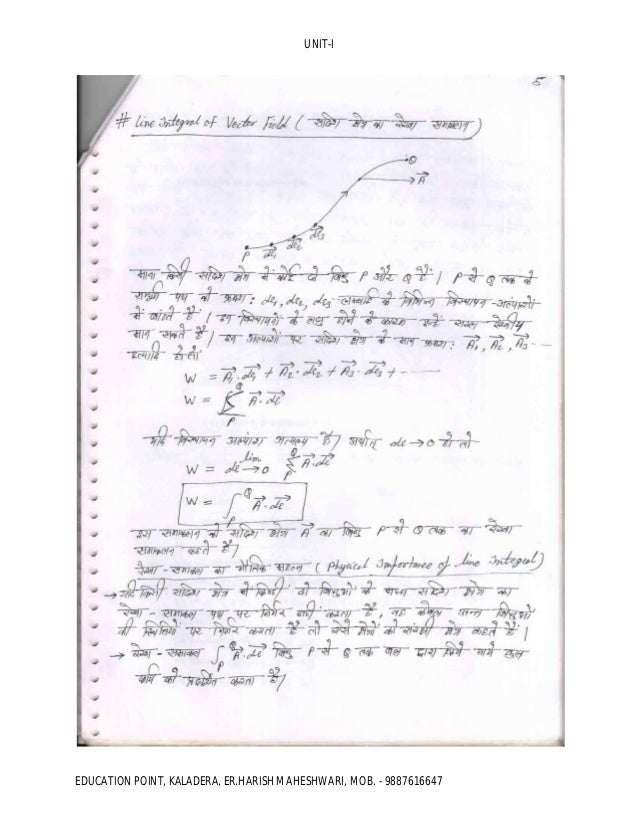 UNIT-I
5
# Line Integral of Vector Field ( सदिश क्षेत्र का रेखा समाकलन )
Q
A⃗
P de₁ de₂ de₃
माना किसी सदिश क्षेत्र में कोई दो बिन्दु P और Q हैं। P से Q तक के
सम्पूर्ण पथ को क्रमशः de₁, de₂, de₃ लम्बाई के विभिन्न विस्थापन-अल्पांशों
में बांटते हैं। इन विस्थापनों के लघु होने के कारण इन्हें सरल रेखीय
मान सकते हैं। इन अल्पांशों पर सदिश क्षेत्र के मान क्रमशः A⃗₁, A⃗₂, A⃗₃ ---
इत्यादि हो तो
W = A⃗₁.de⃗₁ + A⃗₂.de⃗₂ + A⃗₃.de⃗₃ + -----
W = Σ_P^Q A⃗.de⃗
यदि विस्थापन अल्पांश अत्यल्प है। अर्थात् de → 0 हो तो
W = lim de→0 Σ_P^Q A⃗.de⃗
W = ∫_P^Q A⃗.de⃗
इस समाकलन को सदिश क्षेत्र A⃗ का बिन्दु P से Q तक का रेखा
समाकलन कहते हैं।
रेखा-समाकल का भौतिक महत्व ( Physical Importance of line Integral)
→ यदि किसी सदिश क्षेत्र में किन्हीं दो बिन्दुओं के मध्य सदिश क्षेत्र का
रेखा-समाकल पथ पर निर्भर नहीं करता है, वह केवल अन्त्य बिन्दुओं
की स्थितियों पर निर्भर करता है तो ऐसे क्षेत्रों को संरक्षी क्षेत्र कहते हैं।
→ रेखा-समाकल ∫_P^Q A⃗.de⃗ बिन्दु P से Q तक बल द्वारा किये गये कुल
कार्य को प्रदर्शित करता है।
EDUCATION POINT, KALADERA, ER.HARISH MAHESHWARI, MOB. - 9887616647